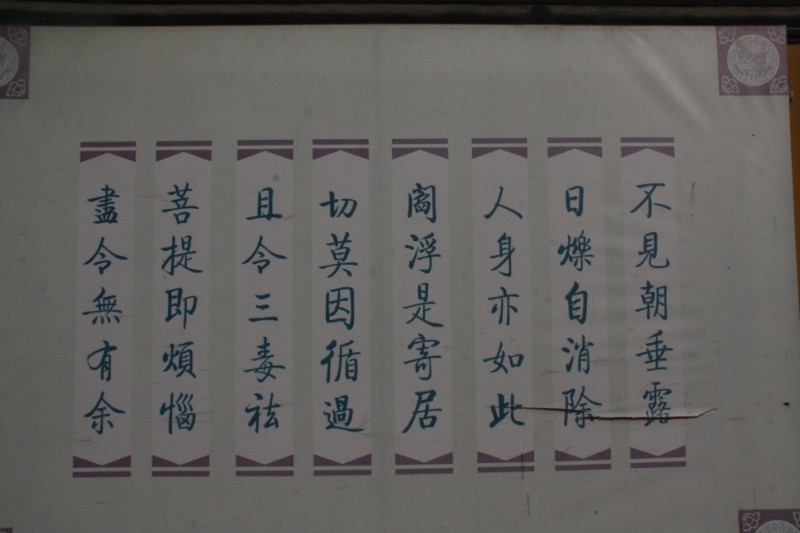 不見朝垂露
日爍自消除
人身亦如此
閻浮是寄居
切莫因循過
且令三毒祛
菩提即煩惱
盡令無有余